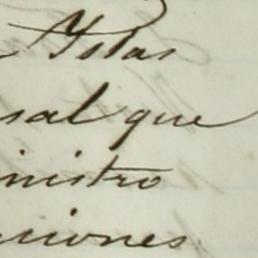 Yslas
sal que
nistro
ciones